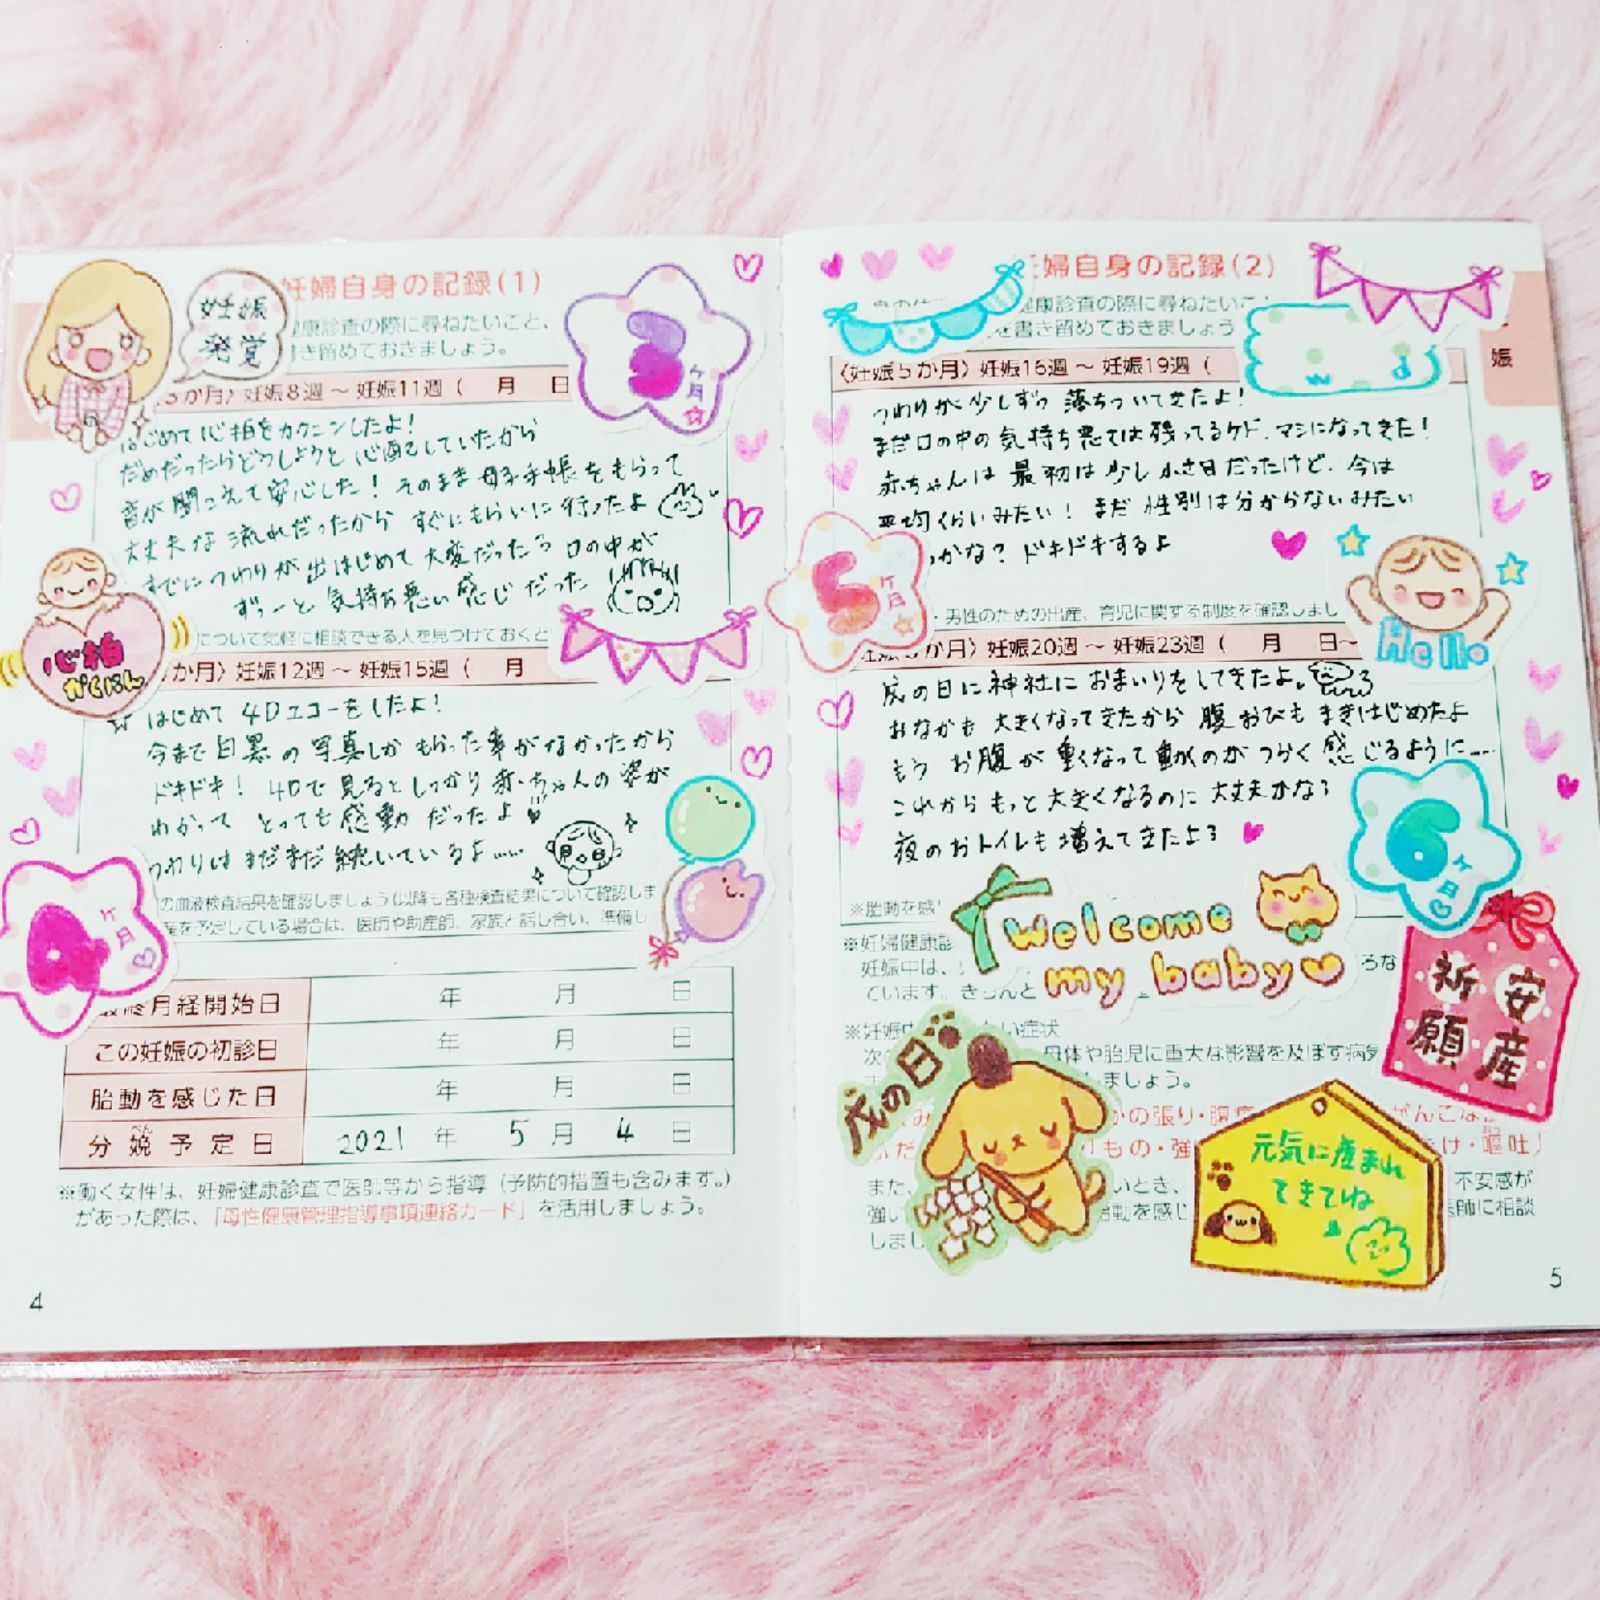 妊娠
発覚
妊婦自身の記録(1)
康診査の際に尋ねたいこと、
書き留めておきましょう。
3ヶ月
か月〉妊娠8週 ~ 妊娠11週( 月 日
はじめて心拍をカクニンしたよ!
だめだったらどうしようと心配していたから
音が聞こえて安心した!そのまま母子手帳をもらって
大丈夫な流れだったからすぐにもらいに行ったよ
すでにつわりが出はじめて大変だった
口の中が
ずっーと気持ち悪い感じだった
心拍
かくにん
について気軽に相談できる人を見つけておくと
か月〉妊娠12週 ~ 妊娠15週( 月
はじめて4Dエコーをしたよ!
今まで白黒の写真しかもらった事がなかったから
ドキドキ!4Dで見るとしっかり赤ちゃんの姿が
わかってとっても感動だったよ
つわりはまだまだ続いているよ……
の血液検査結果を確認しましょう(以降も各種検査結果について確認しま
産を予定している場合は、医師や助産師、家族と話し合い、準備し
4ヶ月
最終月経開始日 年 月 日
この妊娠の初診日 年 月 日
胎動を感じた日 年 月 日
分娩予定日 2021年 5月 4日
べん
※働く女性は、妊婦健康診査で医師等から指導(予防的措置も含みます。)
があった際は、「母性健康管理指導事項連絡カード」を活用しましょう。
4
妊婦自身の記録(2)
健康診査の際に尋ねたいこと
を書き留めておきましょう
娠
〈妊娠5か月〉妊娠16週 ~ 妊娠19週(
つわりが少しずつ落ちついてきたよ!
まだ口の中の気持ち悪では残ってるケド、マシになってきた!
赤ちゃんは最初は少し小さ目だったけど、今は
平均くらいみたい!まだ性別は分からないみたい
かな?ドキドキするよ
5ヶ月
・男性のための出産、育児に関する制度を確認しまし
Hello
か月〉妊娠20週 ~ 妊娠23週( 月 日~
戌の日に神社におまいりをしてきたよ。
おなかも大きくなってきたから腹おびもまきはじめたよ
もうお腹が重くなって動くのがつらく感じるように……
これからもっと大きくなるのに大丈夫かな?
夜のおトイレも増えてきたよ
6ヶ月
※胎動を感
Welcome
my baby
※妊婦健康診
妊娠中は、
ています。きちんと
安産
祈願
戌の日
い症状
母体や胎児に重大な影響を及ぼす病気
ましょう。
かの張り・腹
もの・強
け・嘔吐)
元気に産まれ
てきてね
また、
いとき、
不安感が
強い
動を感じ
医師に相談
しまし
5